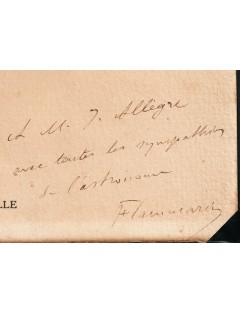 A M. J. Allègre
avec toutes les sympathies
de l'astronome
Flammarion
LLE